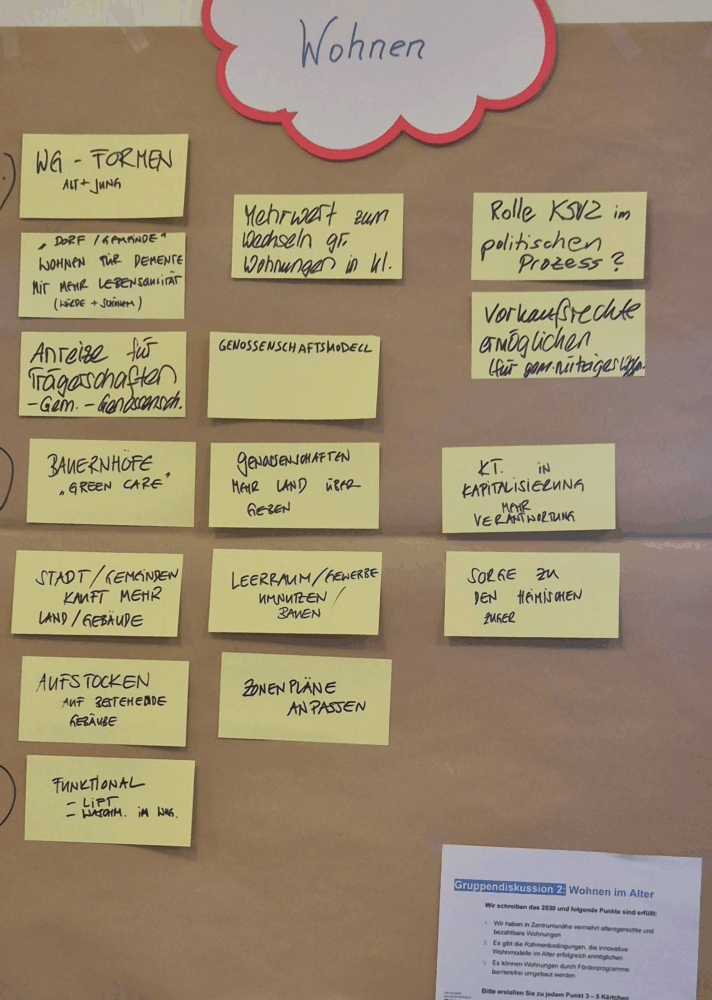 Wohnen
WG - FORMEN
ALT + JUNG
"DORF / GEMEINDE"
WOHNEN FÜR DEMENTE
MIT MEHR LEBENSQUALITÄT
(WÜRDE +
Anreize für
Trägerschaften
- Gem. - Genossensch.
BAUERNHÖFE
„GREEN CARE"
STADT/GEMEINDEN
KAUFT MEHR
LAND/GEBÄUDE
AUFSTOCKEN
AUF BESTEHENDE
GEBÄUDE
FUNKTIONAL
- LIFT
- WASCHM. IM WHG.
Mehrwert zum
Wechseln gr.
Wohnungen in kl.
GENOSSENSCHAFTSMODELL
GENOSSENSCHAFTEN
MEHR LAND ÜBER
GEBEN
LEERRAUM/GEWERBE
UMNUTZEN /
BAUEN
ZONENPLÄNE
ANPASSEN
Rolle KSVZ im
politischen
Prozess?
Vorkaufsrechte
ermöglichen
(für gem.nütziges Whn.
KT. IN
KAPITALISIERUNG
MEHR
VERANTWORTUNG
SORGE ZU
DEN HEIMISCHEN
ZUGER
Gruppendiskussion 2: Wohnen im Alter
Wir schreiben das 2030 und folgende Punkte sind erfüllt:
1. Wir haben in Zentrumsnähe vermehrt altersgerechte und
bezahlbare Wohnungen
2. Es gibt die Rahmenbedingungen, die innovative
Wohnmodelle im Alter erfolgreich ermöglichen
3. Es können Wohnungen durch Förderprogramme
barrierefrei umgebaut werden
Bitte erstellen Sie zu jedem Punkt 3 – 5 Kärtchen